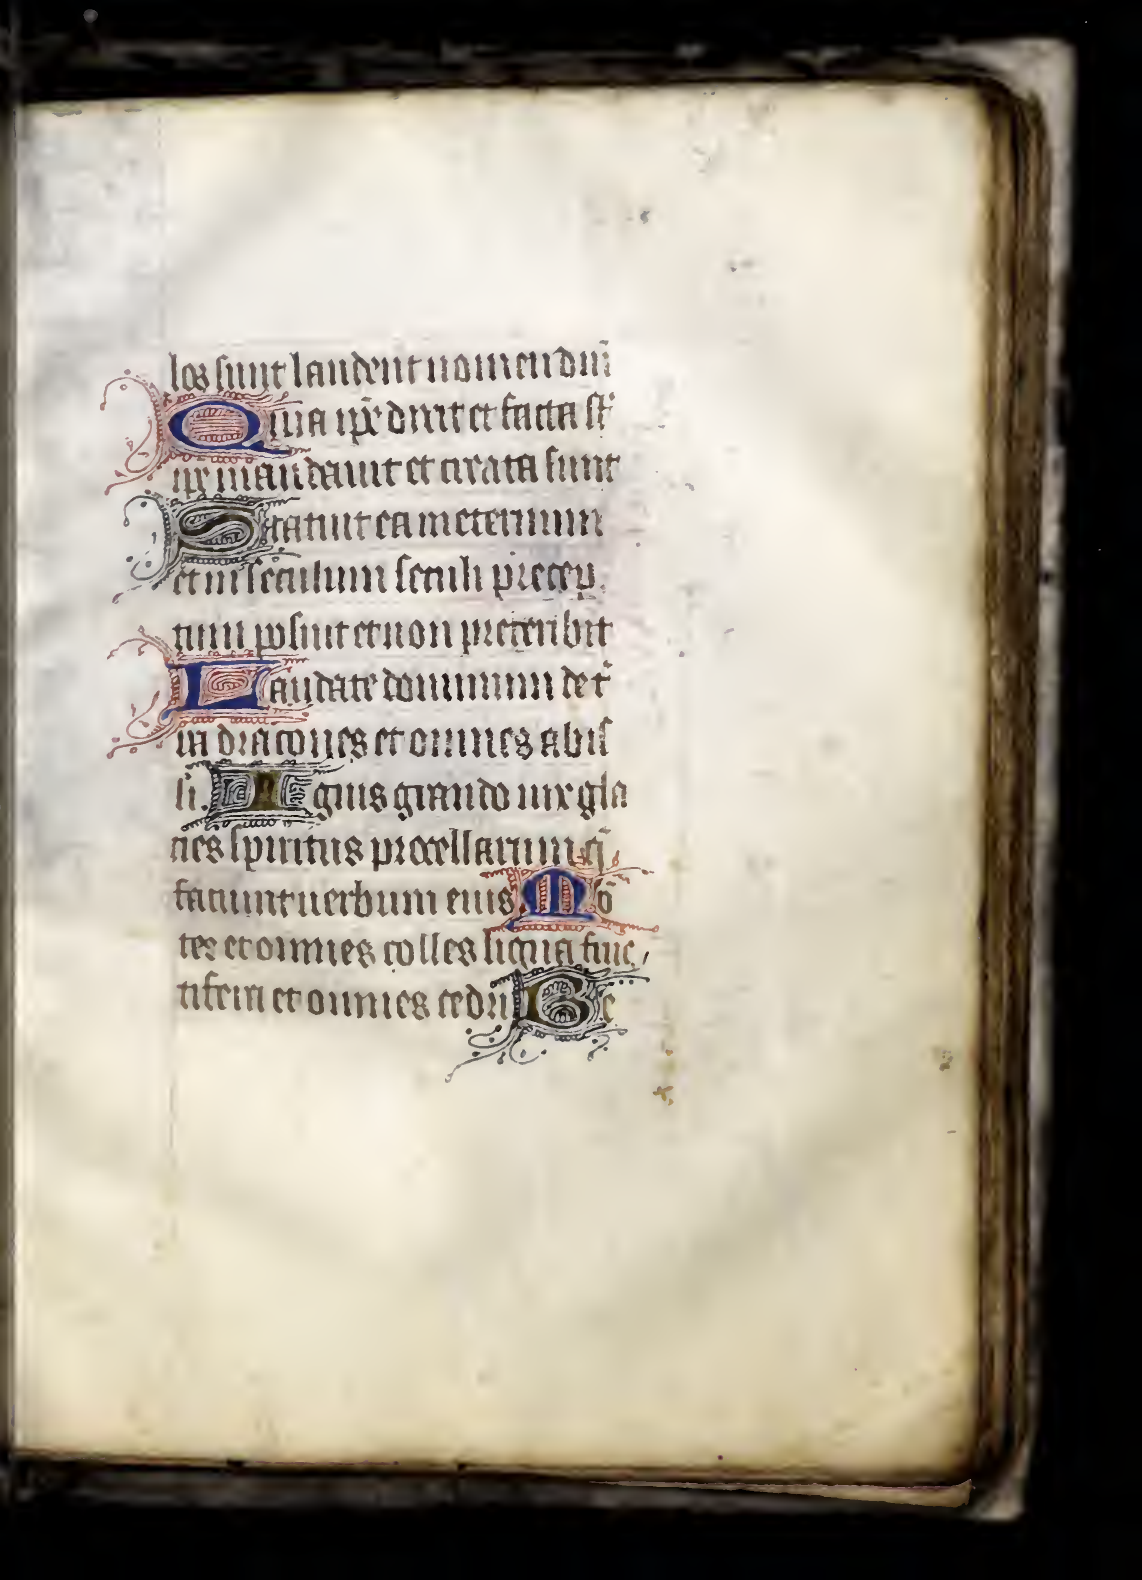 los sunt laudent nomen dm̄
Quia ip̄e dixit et facta st̄
ip̄e mandauit et creata sunt
Statuit ea in eternum
et in seculum seculi precep
tum posuit et non preteribit
Laudate dominum de t̄
ra dracones et omnes abis
si. Ignis grando nix gla
cies spiritus procellarum q̄
faciunt uerbum eius Mō
tes et omnes colles ligna fruc
tifera et omnes cedri Be